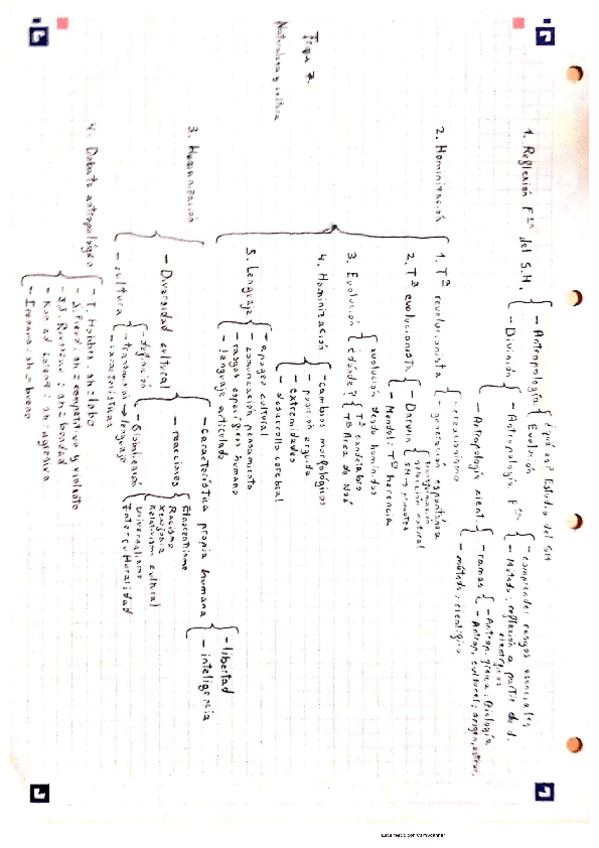 Tema 7.
Naturaleza y cultura
1. Reflexión Fªca del S.H.
- Antropología
¿qué es? Estudio del SH
Evolución
- División
- Antropología Fªca
- comprender rasgos esenciales
- Método: reflexión a partir de d. científicos
- Antropología cient.
- ramas
- Antrop. física: Biología
- Antrop. cultural: origen, estruc.
- método: científico
2. Hominización
1. Tª revolucionista
- creacionismo
- generación espontánea
2. Tª evolucionista
- Darwin
transformación
selección natural
SH → primates
- Mendel: Tª herencia
3. Evolución
evolución desde homínidos
¿dónde?
Tª candelabro
Tª Arca de Noé
4. Hominización
- cambios morfológicos
- posición erguida
- extremidades
- desarrollo cerebral
5. Lenguaje
- apogeo cultural
- comunicación pensamiento
- rasgo específico humano
- lenguaje articulado
3. Humanización
- Diversidad cultural
- característica propia humana
- libertad
- inteligencia
- reacciones
Etnocentrismo
Racismo
Xenofobia
Relativismo cultural
Universalismo
Interculturalidad
- Globalización
- cultura
definición
- transmisión → lenguaje
- características
4. Debate antropológico
- T. Hobbes: sh = lobo
- S. Freud: sh = competitivo y violento
- J.J. Rousseau: sh = bondad
- Konrad Lorenz: sh = agresivo
: sh = bueno